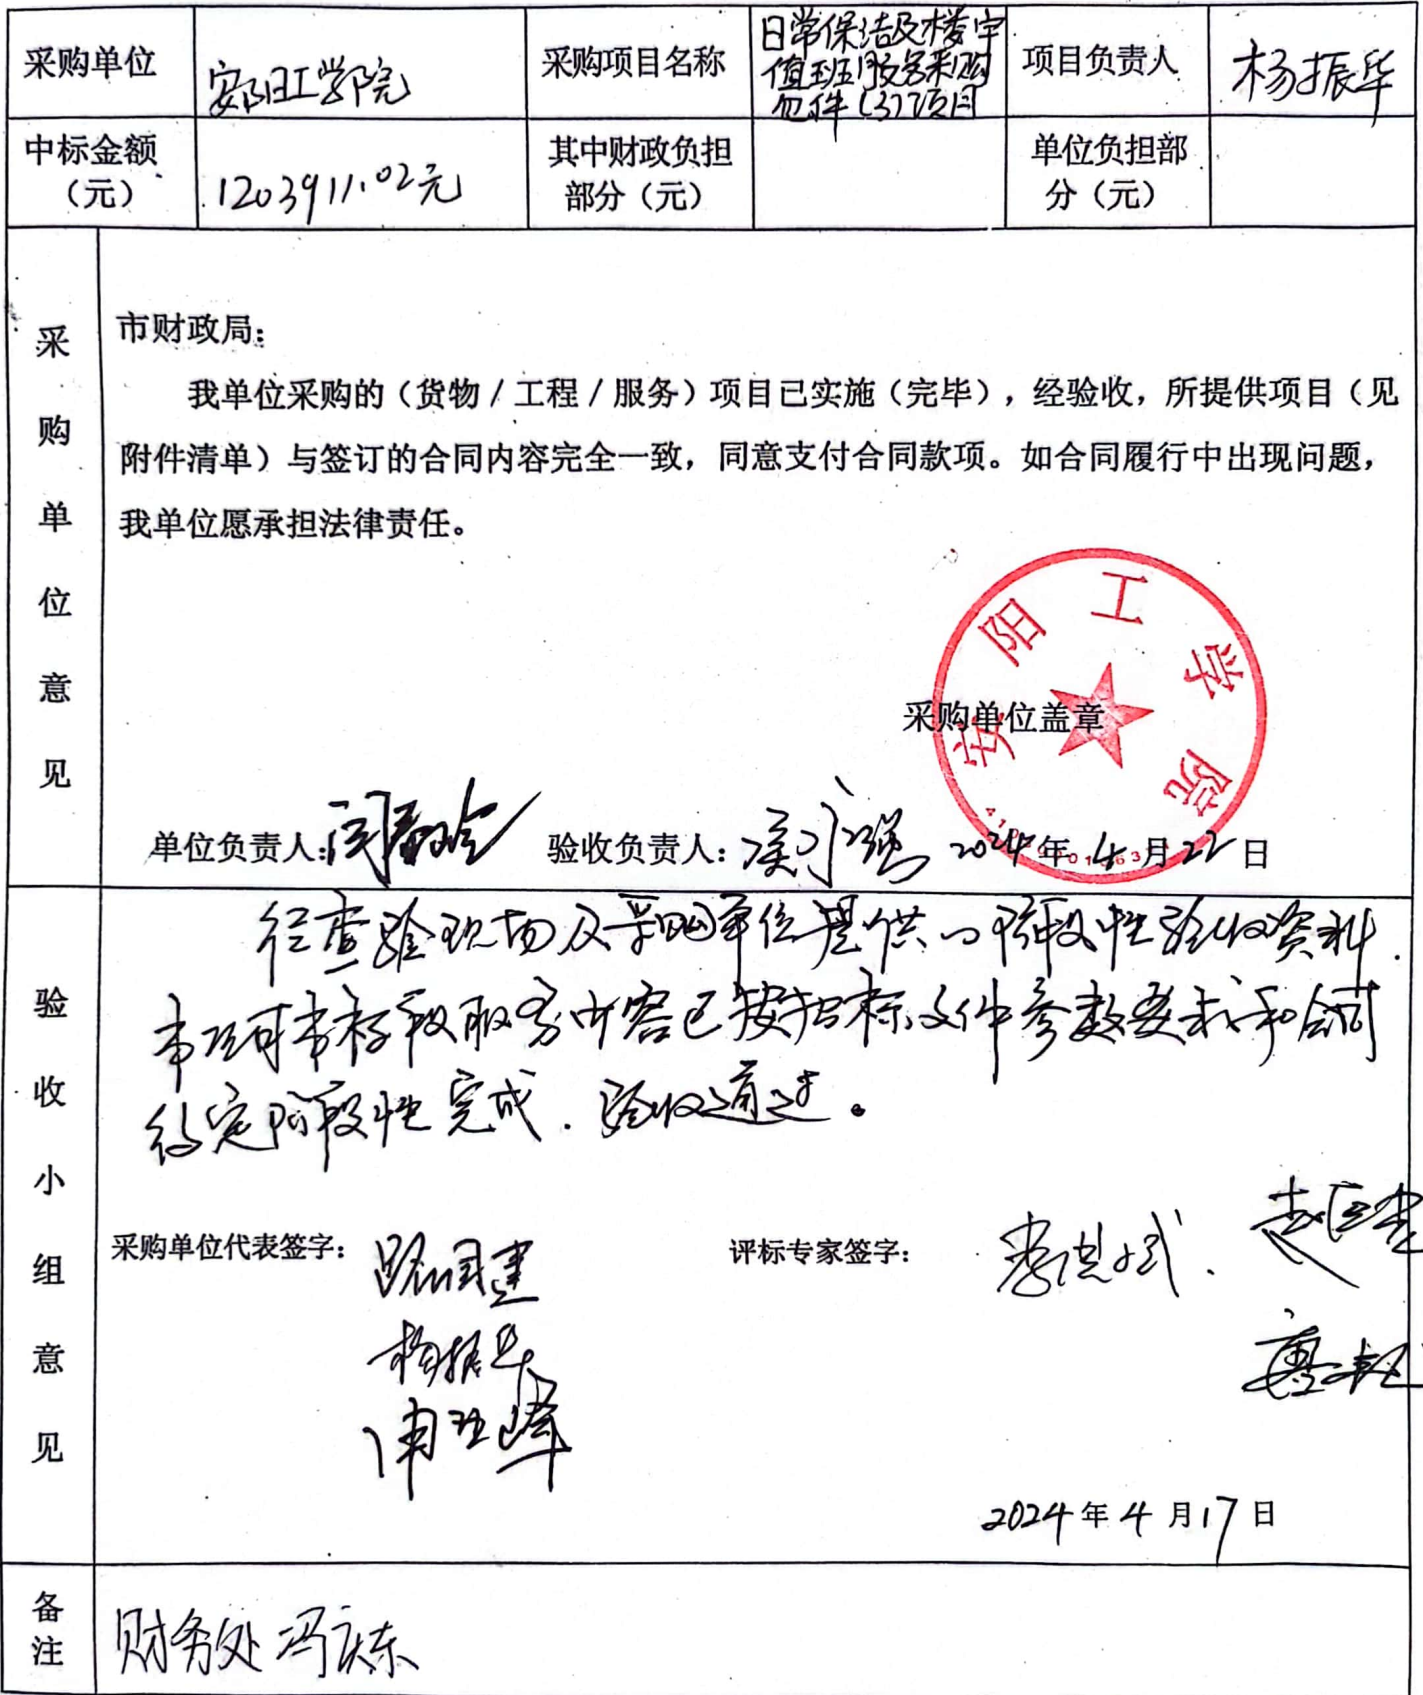 采购单位 安阳工学院 采购项目名称 日常保洁及楼宇值班服务采购包件(3)项目 项目负责人 杨振华
中标金额（元） 1203911.02元 其中财政负担部分（元） 单位负担部分（元）
采购单位意见
市财政局：
我单位采购的（货物/工程/服务）项目已实施（完毕），经验收，所提供项目（见
附件清单）与签订的合同内容完全一致，同意支付合同款项。如合同履行中出现问题，
我单位愿承担法律责任。
安阳工学院
采购单位盖章
单位负责人： 验收负责人： 2024年4月22日
验收小组意见
经查验现场及采购单位提供的阶段性验收资料.
本项目本阶段服务内容已按招标文件参数要求和合同
约定阶段性完成.验收通过。
采购单位代表签字： 评标专家签字：
杨振华
2024年4月17日
备注 财务处 冯庆东